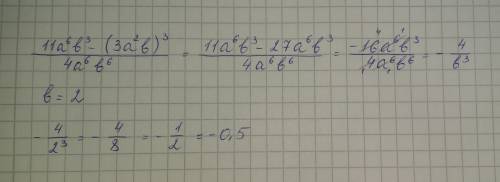 (11a⁶b³ - (3a²b)³)/(4a⁶b⁶) = (11a⁶b³ - 27a⁶b³)/(4a⁶b⁶) = (-16a⁶b³)/(4a⁶b⁶) = -4/b³
b = 2
-4/2³ = -4/8 = -1/2 = -0,5